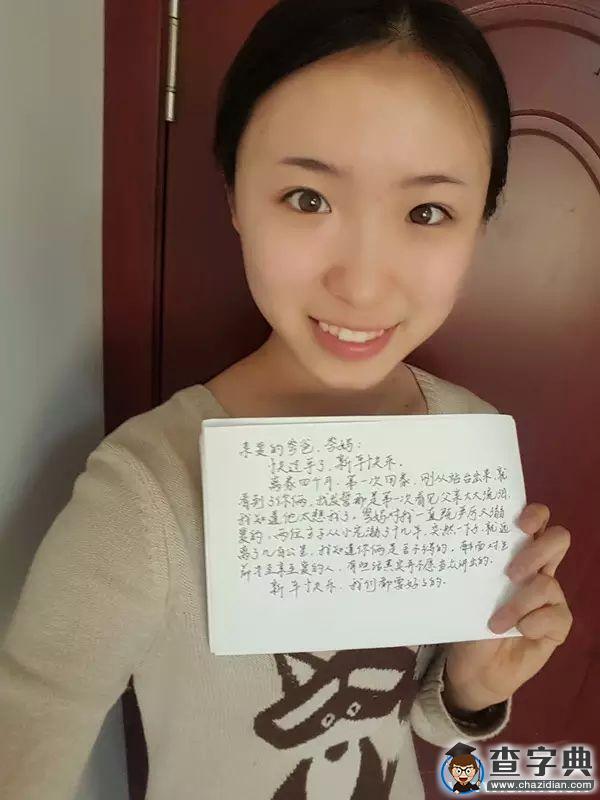 亲爱的爸爸、妈妈:
快过年了,新年快乐。
离家四个月,第一次回家,刚从站台出来,就
看到了你俩,我发誓那是第一次看见父亲大大流泪,
我知道他太想我了。妈妈对我一直既严厉又溺
爱的,两位主子从小宠溺了十几年,突然一下子就远
离了几百公里,我知道你俩是舍不得的,每面对
最爱的人,有些话其实并不愿当众讲出的。
新年快乐,我们都要好好的。
查字典
www.chazidian.com